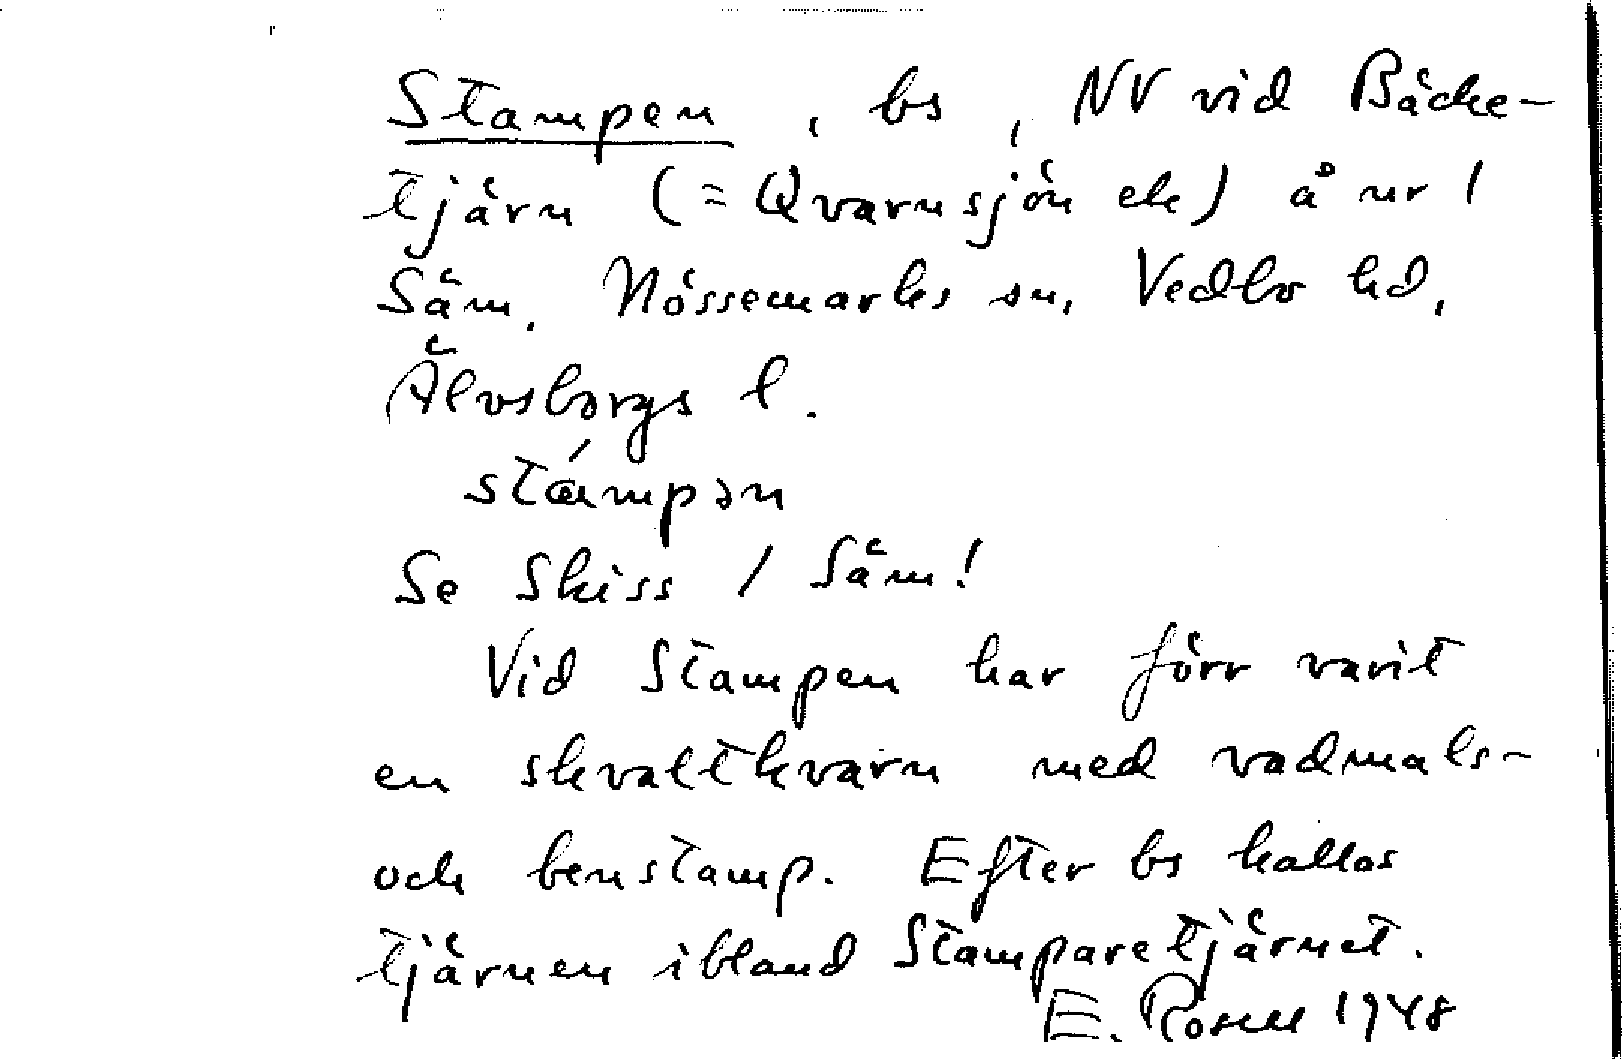 Stampen, bs, NV vid Bäcke-
tjärn (= Qvarnsjön ek) å nr 1
Säm. Nössemarks sn, Vedbo hd,
Älvsborgs l.
stámpən
Se Skiss / Säm!
Vid Stampen har förr varit
en skvaltkvarn med vadmals-
och benstamp. Efter bs kallas
tjärnen ibland Stamparetjärnet.
E. Rosell 1948